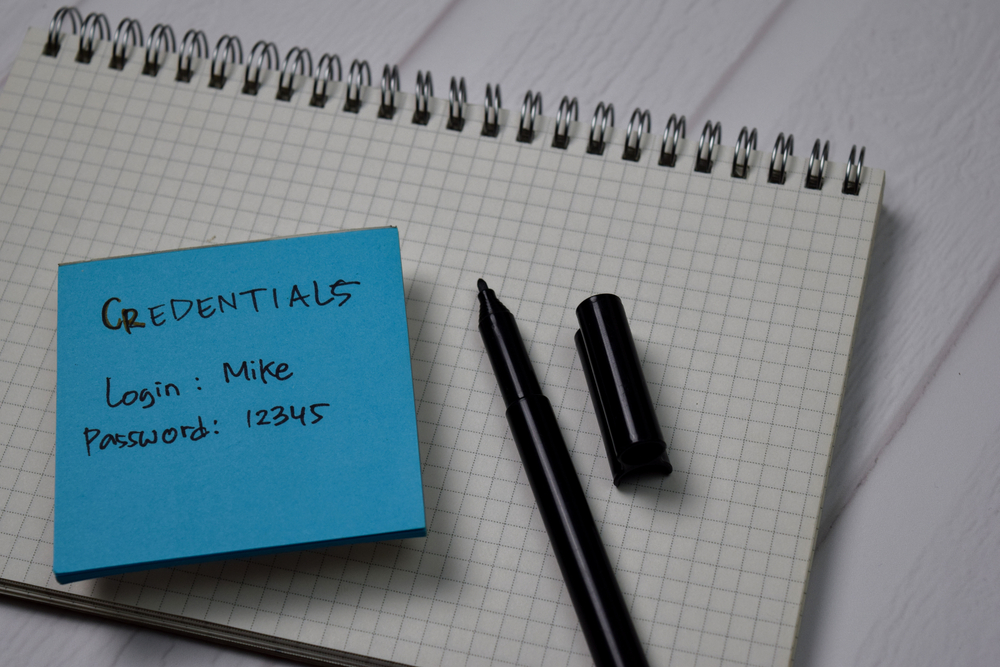 CREDENTIALS
Login : Mike
Password: 12345